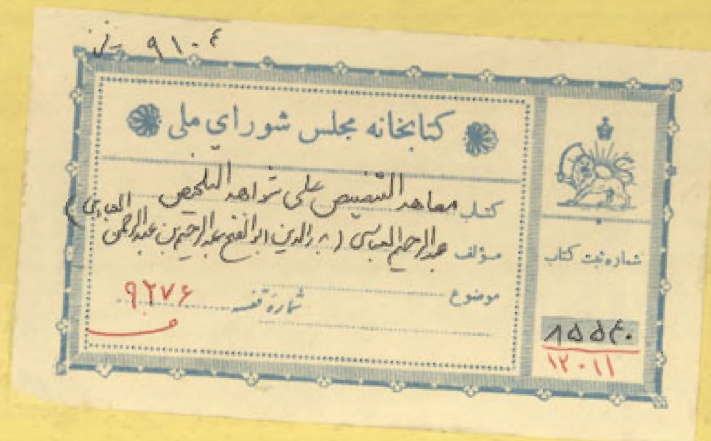 ۹۱۰۴
کتابخانه مجلس شورای ملی
کتاب معاهد التنصیص علی شواهد التلخیص
مؤلف عبدالرحیم العباسی (بدرالدین ابوالفتح عبدالرحیم بن عبدالرحمن العبادی)
موضوع
شماره قفسه ۹۲۷۶
شماره ثبت کتاب
۸۵۵۴۰
۱۲۰۱۱